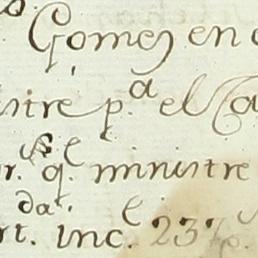 Gomez en
istre p.a el Ca
r. q.e ministre
rt.da inc.e 237